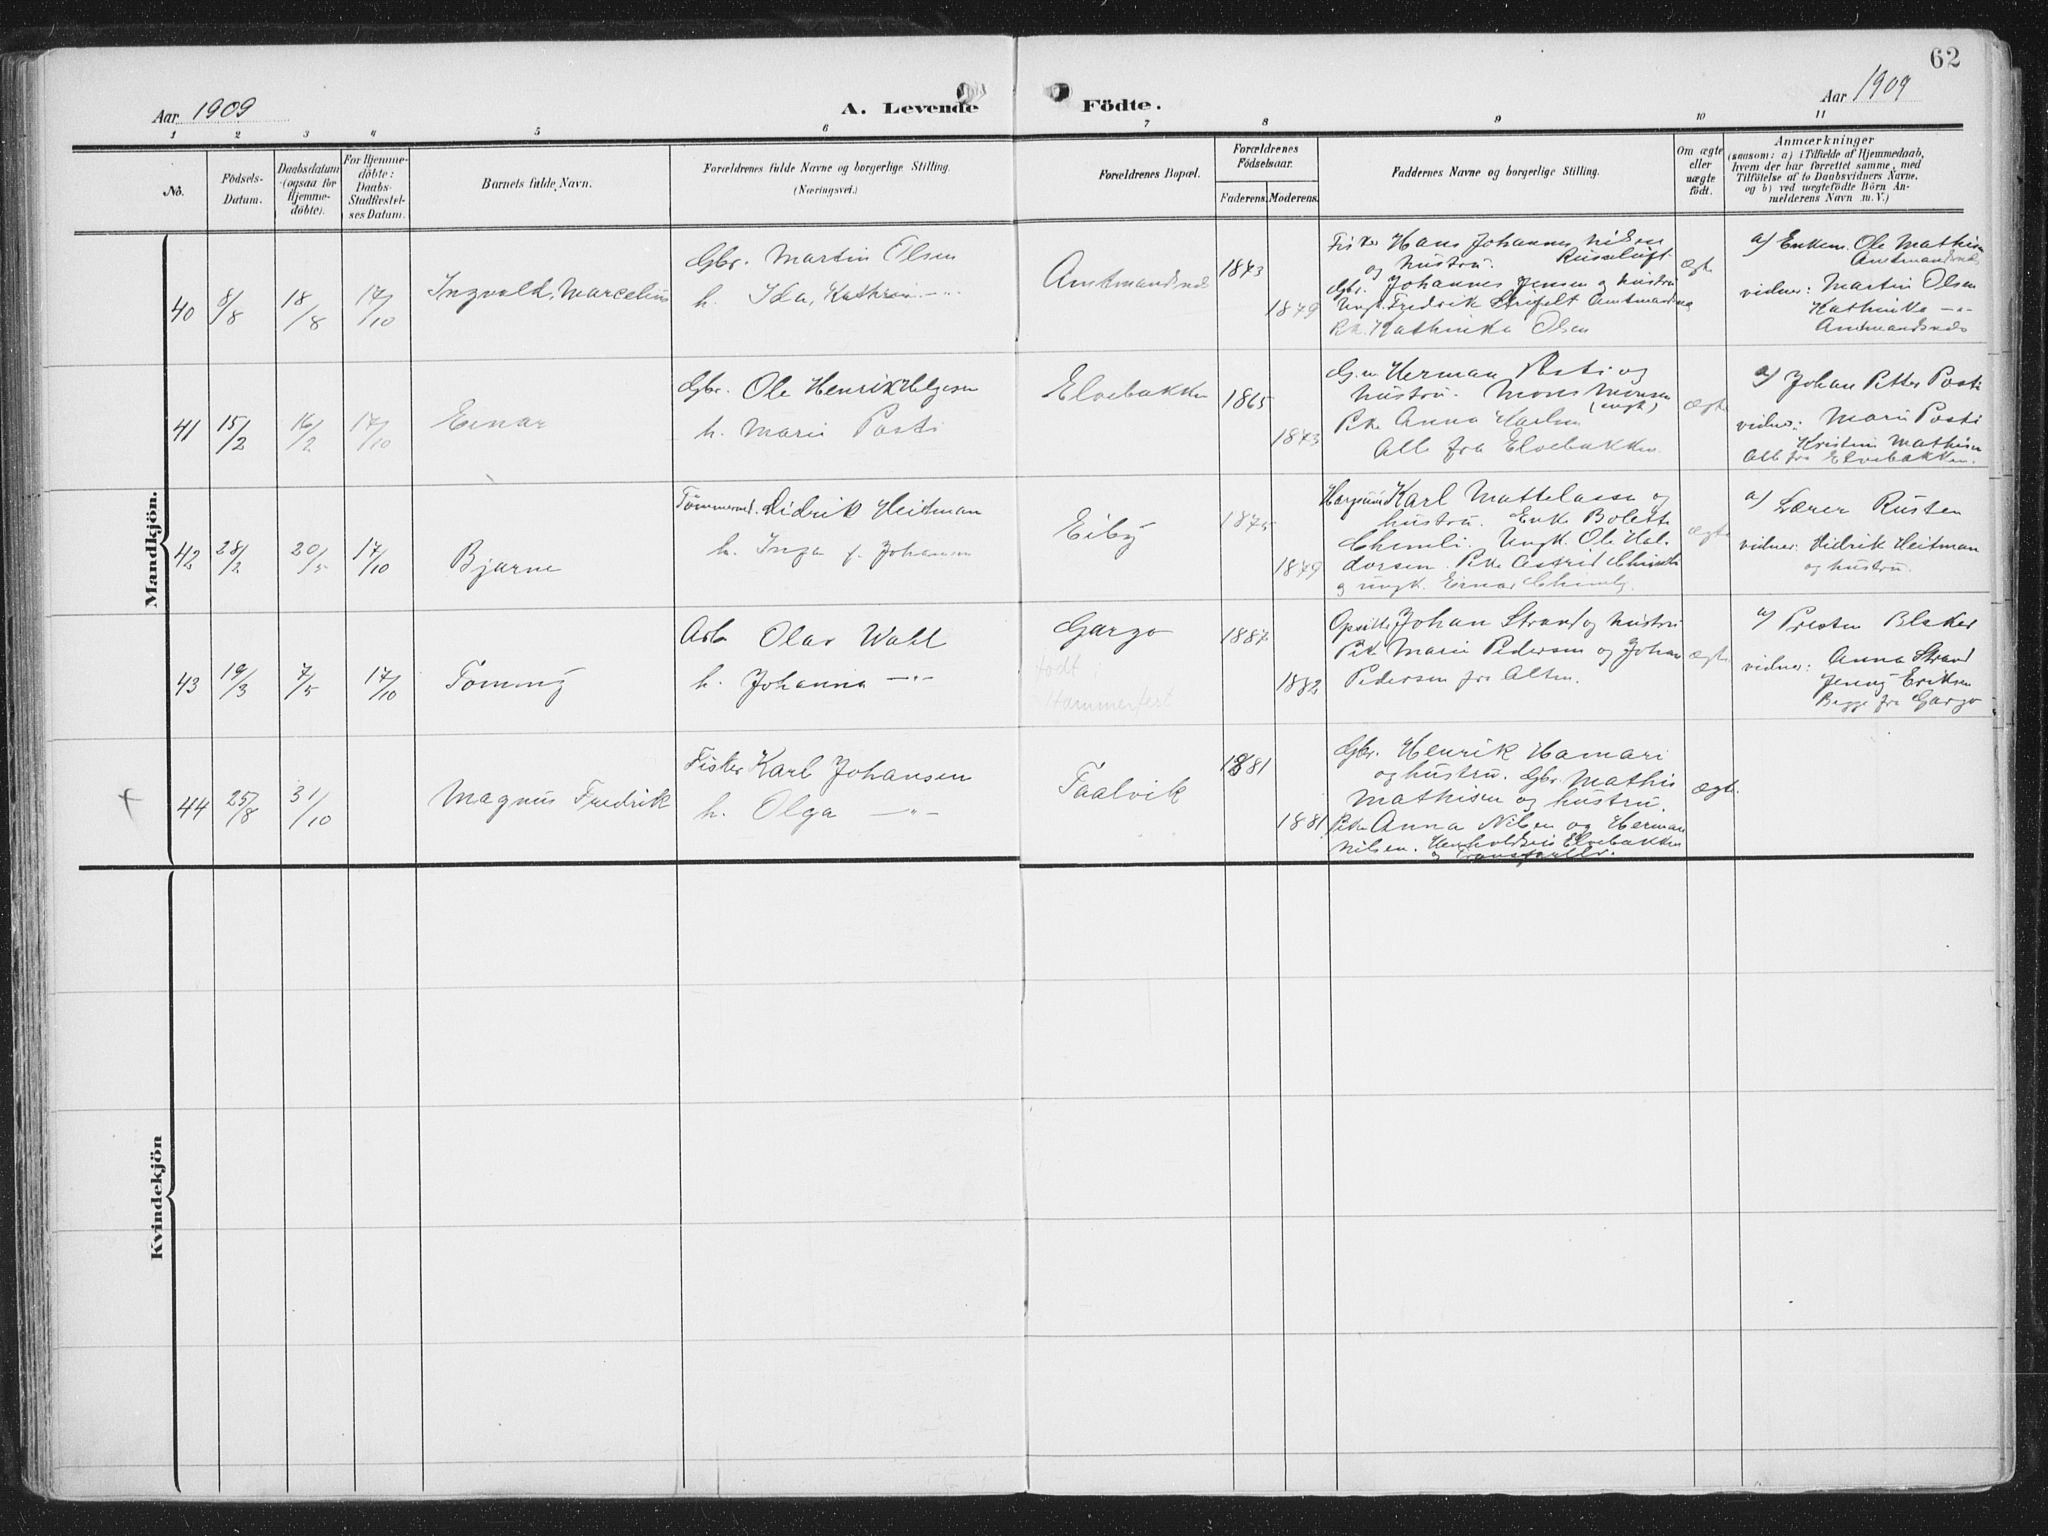 62
Aar 1909
A. Levende Födte.
Aar 1909
1 2 3 4 5 6 7 8 9 10 11
No.
Födsels-Datum.
Daabsdatum (ogsaa for Hjemme-döbte).
For Hjemme-döbte: Daabs-Stadfæstel-ses Datum.
Barnets fulde Navn.
Forældrenes fulde Navne og borgerlige Stilling.
(Næringsvei.)
Forældrenes Bopæl.
Forældrenes Födselsaar.
Faderens. Moderens.
Faddernes Navne og borgerlige Stilling.
Om ægte eller uægte födt.
Anmærkninger
(saasom: a) i Tilfælde af Hjemmedaab,
hvem der har forrettet samme, med
Tilföielse af to Daabsvidners Navne,
og b) ved uægtefödte Börn An-
melderens Navn m.V.)
Mandkjön.
40 8/8 18/8 17/10
Ingvald, Marcelius
Gbr. Martin Olsen
h. Ida, Kathrin —"—
Amtmandsnes
1873
1879
Fisker Hans Johannes Nilsen
og hustru. Russeluft
Gbr. Johannes Jensen og hustru
Ungk. Fredrik Strifelt Amtmandsnes
Pk. Kathinka Olsen
ægte
a) Enkem. Ole Mathisen
Amtmandsnes
vidner: Martin Olsen
Kathinka —"—
Amtmandsnes
41 15/2 16/2 17/10
Einar
Gbr. Ole Henrik Helgesen
h. Marie Posti
Elvebakken
1865
1873
G.m. Herman Posti og
hustru. Mons Monsen
(ungk)
Pike Anna Karlsen
Alle fra Elvebakken.
ægte
a) Johan Petter Posti
vidner: Marie Posti
Kristine Mathisen
Alle fra Elvebakken.
42 28/2 20/5 17/10
Bjarne
Tømmermd. Didrik Heitman
h. Inga f. Johansen
Eiby
1875
1879
Karl Mattelassa og
hustru. Enke Bolette
Ungk. Ole Hal-
dorsen. Pike Astrid
og ungk. Einar
ægte
a) Lærer Rusten
vidner: Didrik Heitman
og hustru.
43 19/3 7/5 17/10
Tommy
Arb. Olav Wahl
h. Johanna —"—
Gargo
født i
Hammerfest
1887
1882
Opsitter Johan Strand og hustru
Pike Marie Pedersen og Johan
Pedersen fra Alten.
ægte
a) Presten Blaker
vidner: Anna Strand
Jenny Eriksen
Begge fra Gargo
+ 44 25/8 31/10
Magnus Fredrik
Fisker Karl Johansen
h. Olga —"—
Taalvik
1881
1881
Gbr. Henrik Hamari
og hustru. Gbr. Mathis
Mathisen og hustru.
Pike Anna Nilsen og Herman
Nilsen. Henholdsvis Elvebakken
og Transfarelv.
ægte
Kvindekjön